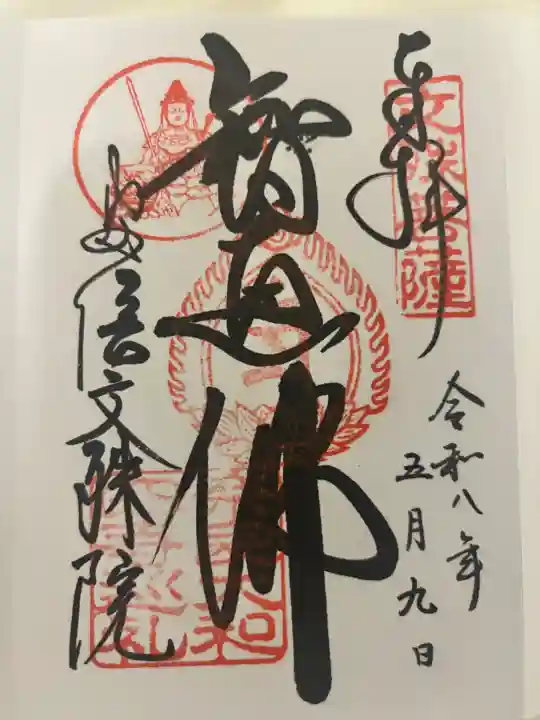 奉拝
文殊菩薩
令和八年
五月九日
智恵佛
安倍文殊院